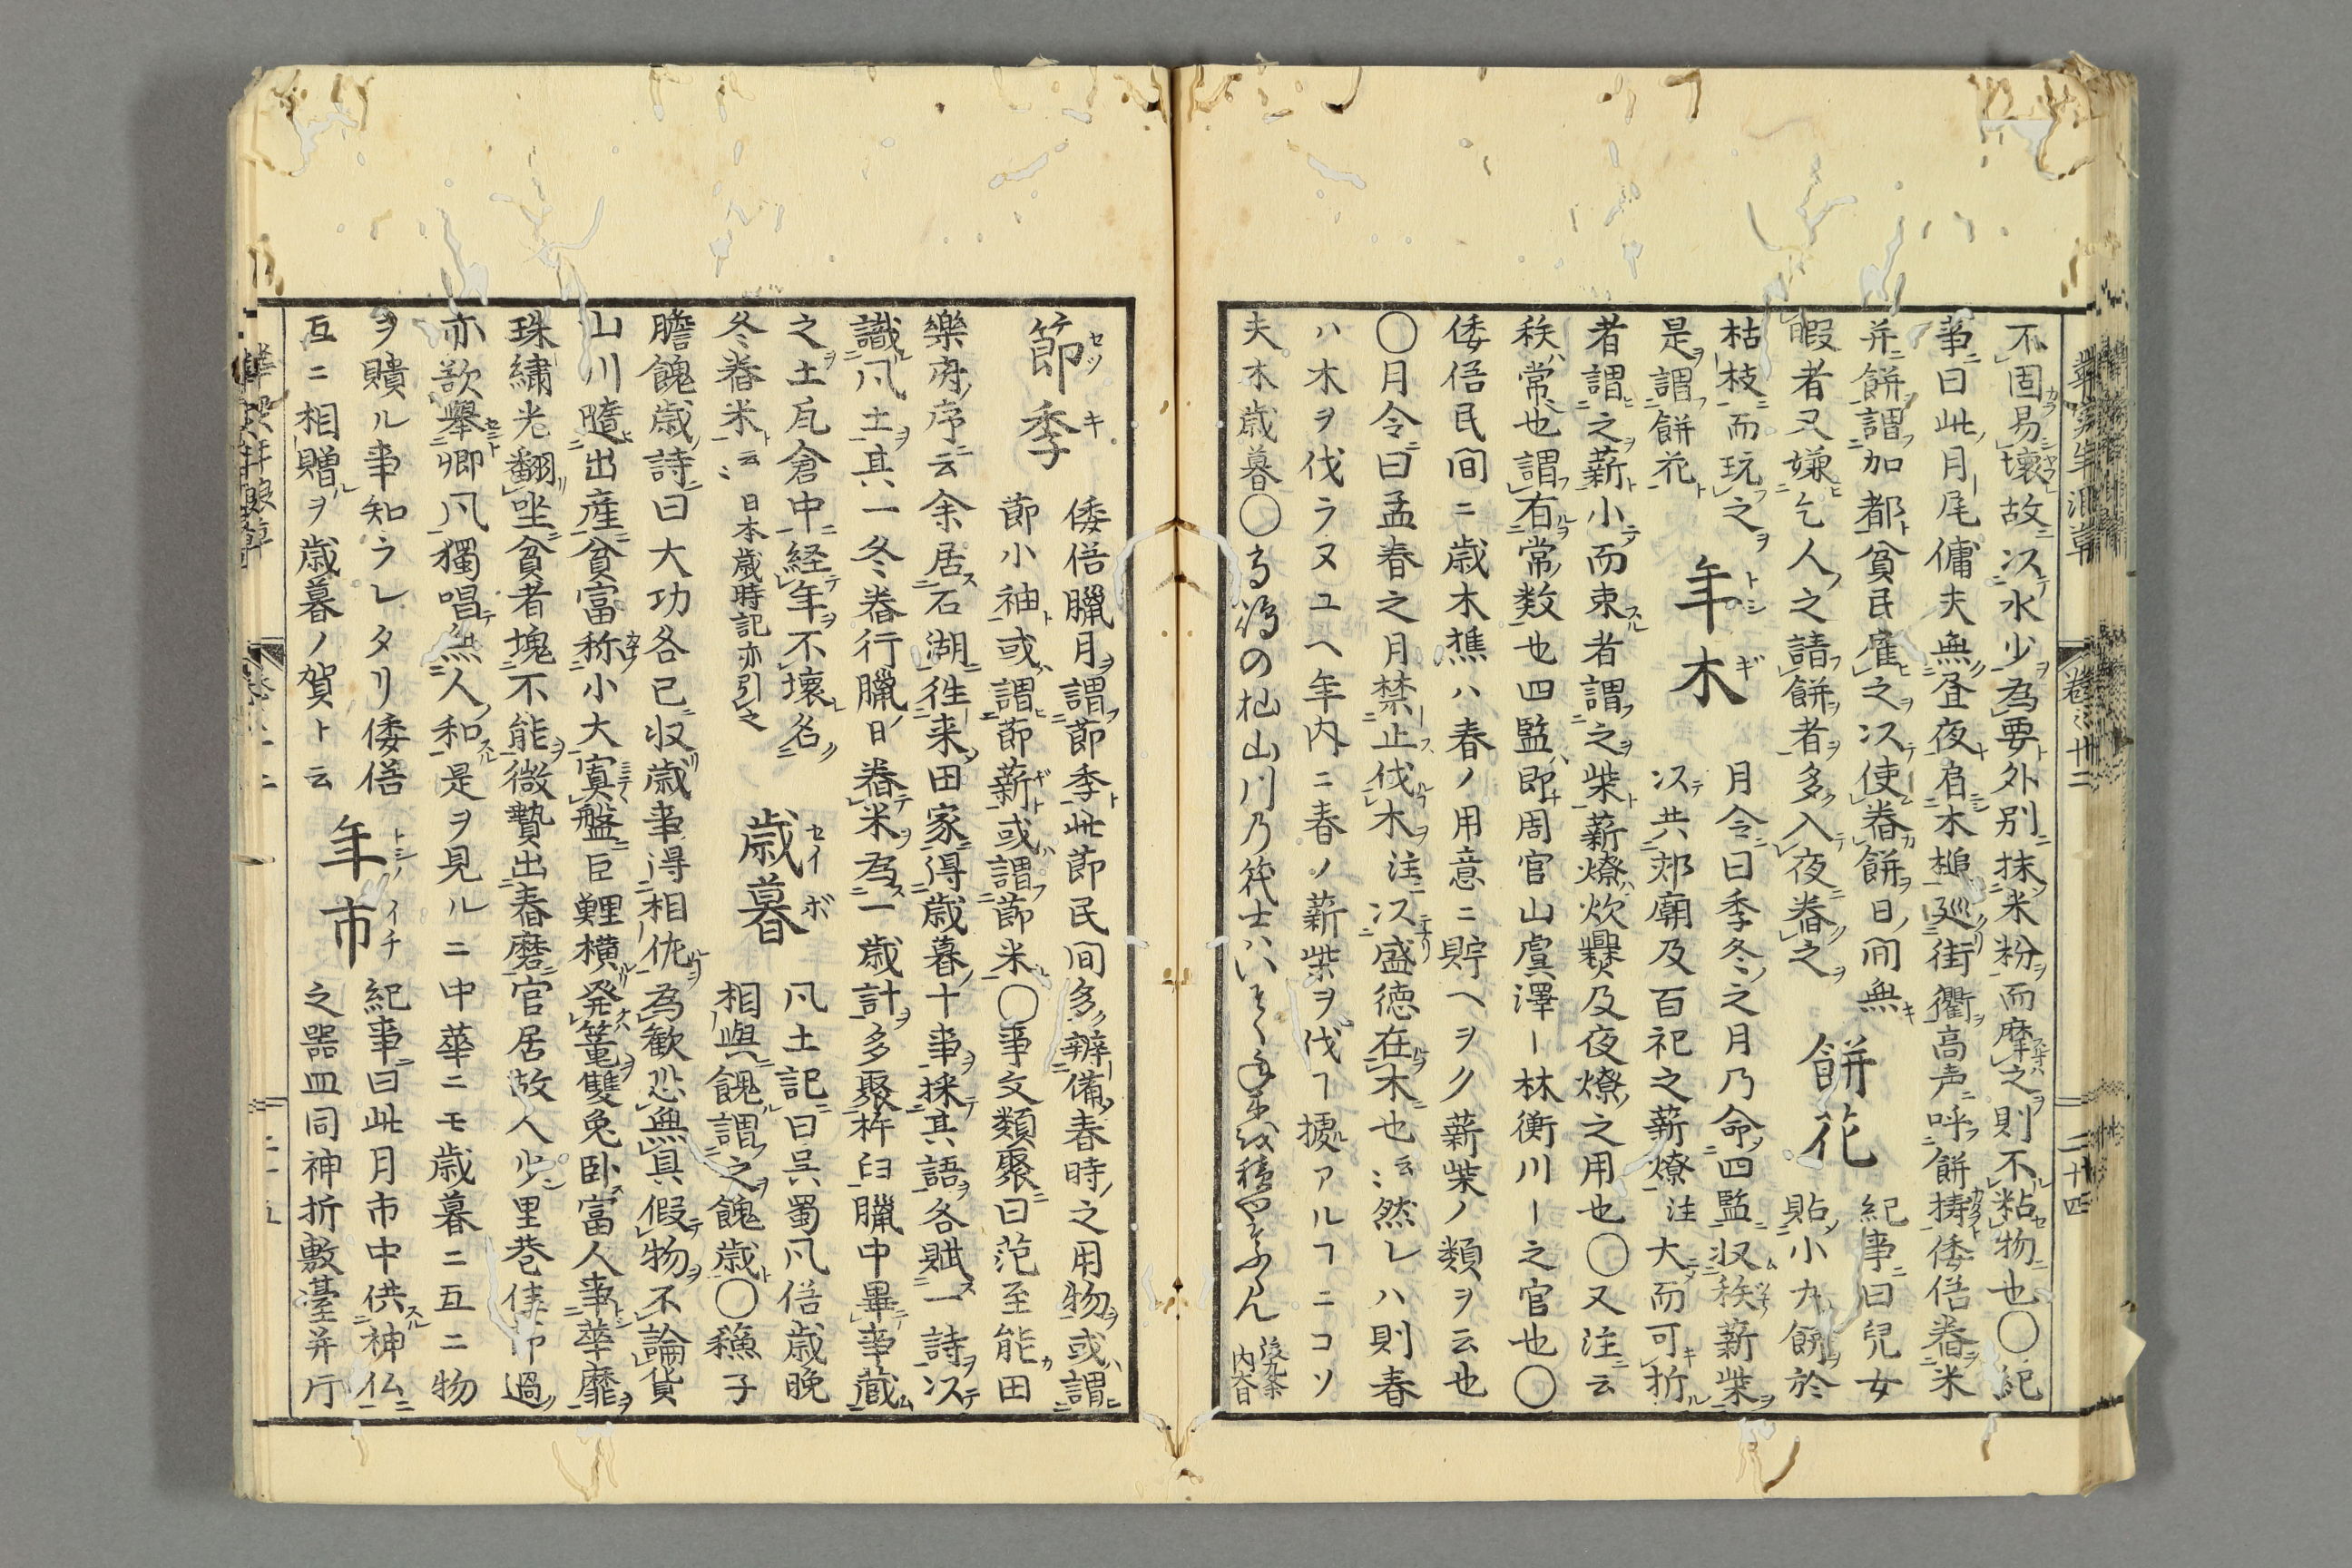 不固易壞故以水少為要外別抹米粉而摩之則不粘物也〇紀
事曰此月尾傭夫無昼夜肩木槌廵街衢高声呼餅擣倭俗舂米
并餅謂加都貧民雇之以使舂餅日間無
暇者又嫌乞人之請餅者多入夜舂之
餅花
紀事曰兒女
貼小丸餅於
枯枝而玩之
是謂餅花
年木
月令曰季冬之月乃命四監収秩薪柴
以共郊廟及百祀之薪燎注大而可折
者謂之薪小而束者謂之柴薪燎炊爨及夜燎之用也〇又注云
秩常也謂有常数也四監即周官山虞澤ー林衡川ー之官也〇
倭俗民間ニ歳木樵ハ春ノ用意ニ貯ヘヲク薪柴ノ類ヲ云也
〇月令曰孟春之月禁止伐木注以盛徳在木也云〻然レハ則春
ハ木ヲ伐ラヌユヘ年内ニ春ノ薪柴ヲ伐ヿ據アルヿニコソ
夫木歳暮〇
後九条
内大臣
節季
倭俗臘月謂節季此節民間多辦備春時之用物或謂
節小袖或謂節薪或謂節米〇事文類聚曰范至能田
樂府序云余居石湖徃来田家得歳暮十事採其語各賦一詩以
識凡土其一冬舂行臘日舂米為一歳計多聚杵臼臘中畢事蔵
之土瓦倉中経年不壞名
冬舂米云〻日本歳時記亦引之
歳暮
凡土記曰呉蜀凡俗歳晩
相與餽謂之餽歳〇蘓子
膽餽歳詩曰大功各已収歳事得相佐為歓恐無具假物不論貨
山川隨出産貧富称小大寘盤巨鯉横発篭雙兔卧富人事華靡
珠繡光翻坐貧者塊不能微贄出舂磨官居故人少里巷佳節過
亦欲舉郷凡獨唱無人和是ヲ見ルニ中華ニモ歳暮ニ互ニ物
ヲ贐ル事知ラレタリ倭俗
互ニ相贈ヲ歳暮ノ賀ト云
年市
紀事曰此月市中供神仏
之器皿同神折敷臺并片